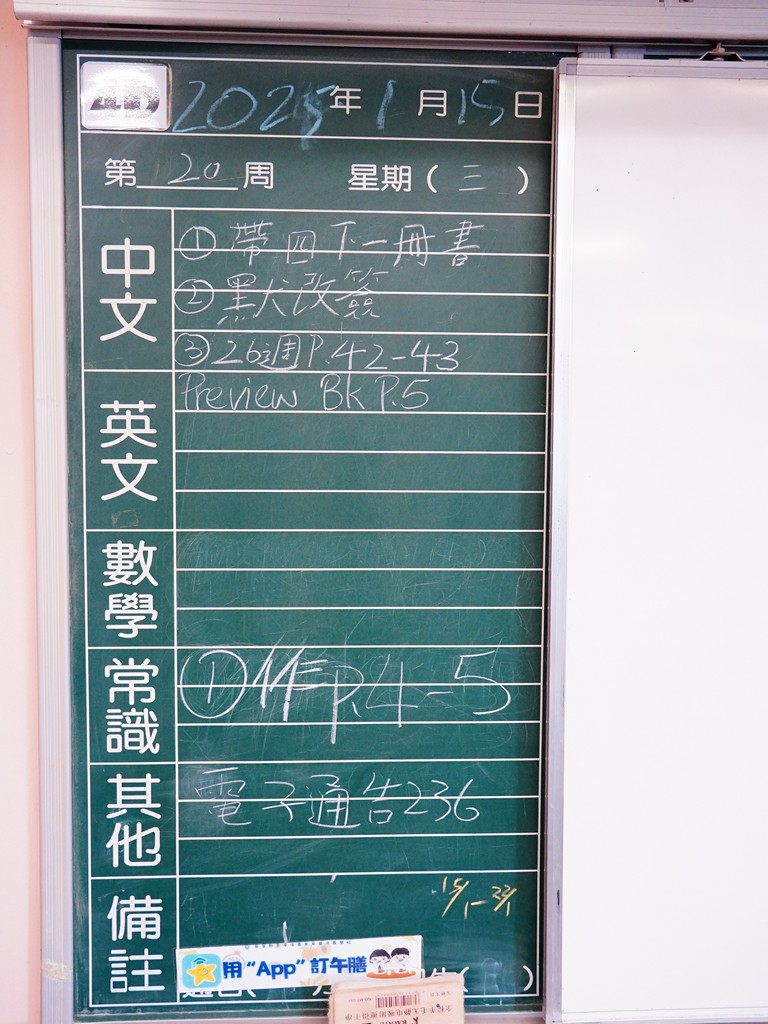 2025年1月15日
第20周 星期(三)
中文
①帶四下一冊書
②默改簽
③26週P.42-43
英文
Preview Bk P.5
數學
常識
其他
電子通告236
備註
15/1-22/1
用“App”訂午膳